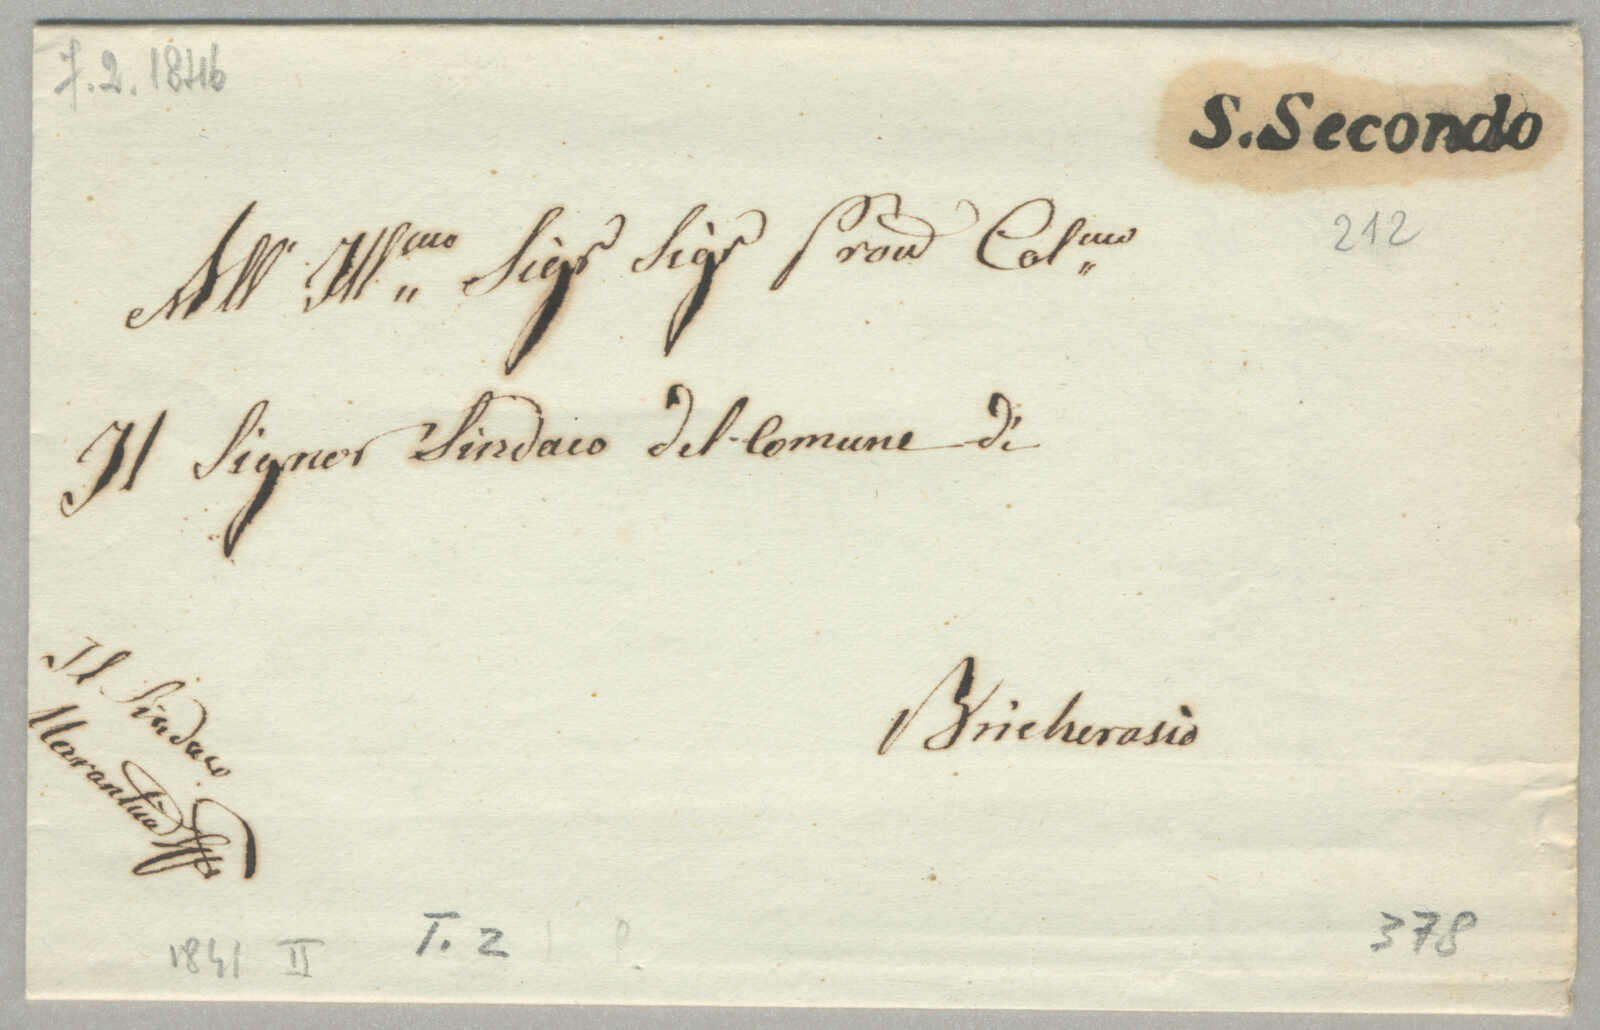 7.2.1846
S. Secondo
212
All' Ill.mo Sigr Sigr Prov Col.mo
Il Signor Sindaco del Comune di
Bricherasio
Il Sindaco
1841 II
T. 2
378